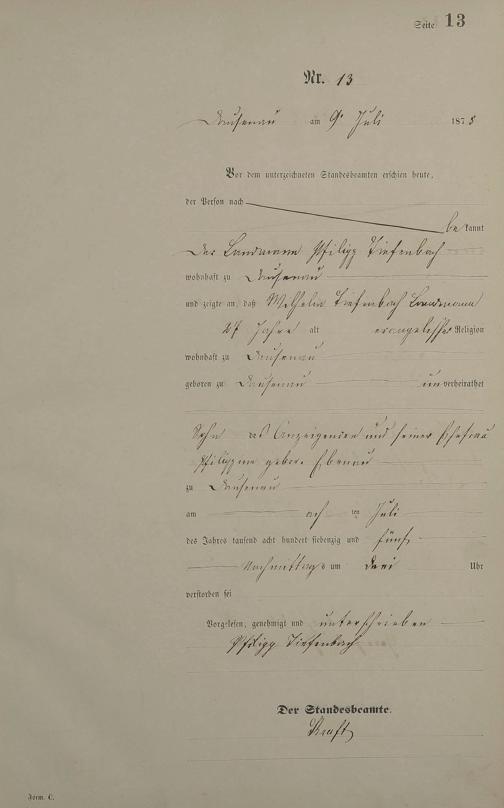 Seite 13
Nr. 13
Dausenau am 9. Juli 1875
Vor dem unterzeichneten Standesbeamten erschien heute,
der Person nach
be kannt
Der Landmann Philipp Tiefenbach
wohnhaft zu Dausenau
und zeigte an, daß Wilhelm Tiefenbach Landmann
27 Jahre alt evangelischer Religion
wohnhaft zu Dausenau
geboren zu Dausenau un verheirathet
Sohn des Anzeigenden und seiner Ehefrau
Philippine gebor. Ebenau
zu Dausenau
am acht ten Juli
des Jahres tausend acht hundert siebenzig und fünf
Nachmittags um drei Uhr
verstorben sei
Vorgelesen, genehmigt und unterschrieben
Philipp Tiefenbach
Der Standesbeamte.
Kraft
Form. C.